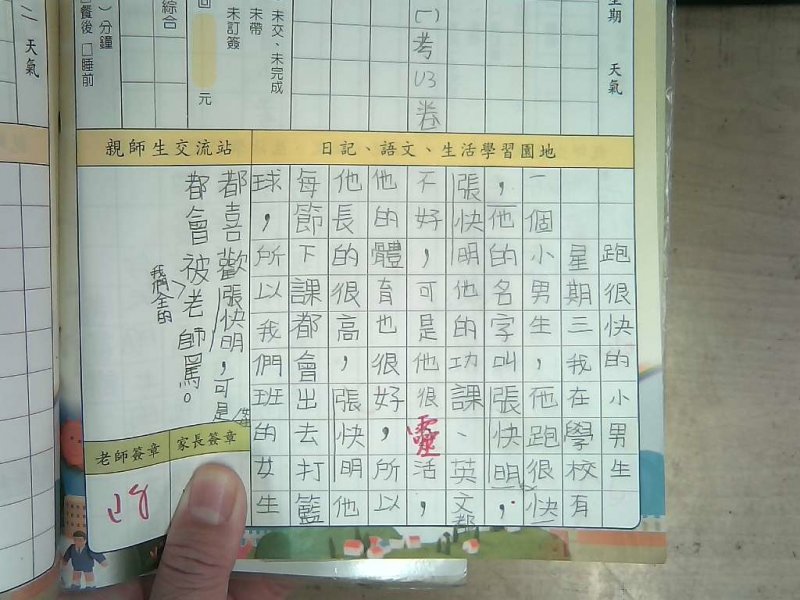 星期 天氣
(一)考U3卷
未交、未完成
未帶
未訂簽
元
綜合
)分鐘
餐後 □睡前
二 天氣
日記、語文、生活學習園地
跑很快的小男生
星期三我在學校有
一個小男生，他跑很快
，他的名字叫張快明，
張快明他的功課、英文都
不好，可是他很靈活，
他的體育也很好，所以
他長的很高，張快明他
每節下課都會出去打籃
球，所以我們班的女生
親師生交流站
都喜歡張快明，可是
都會被老師罵。
家長簽章
老師簽章